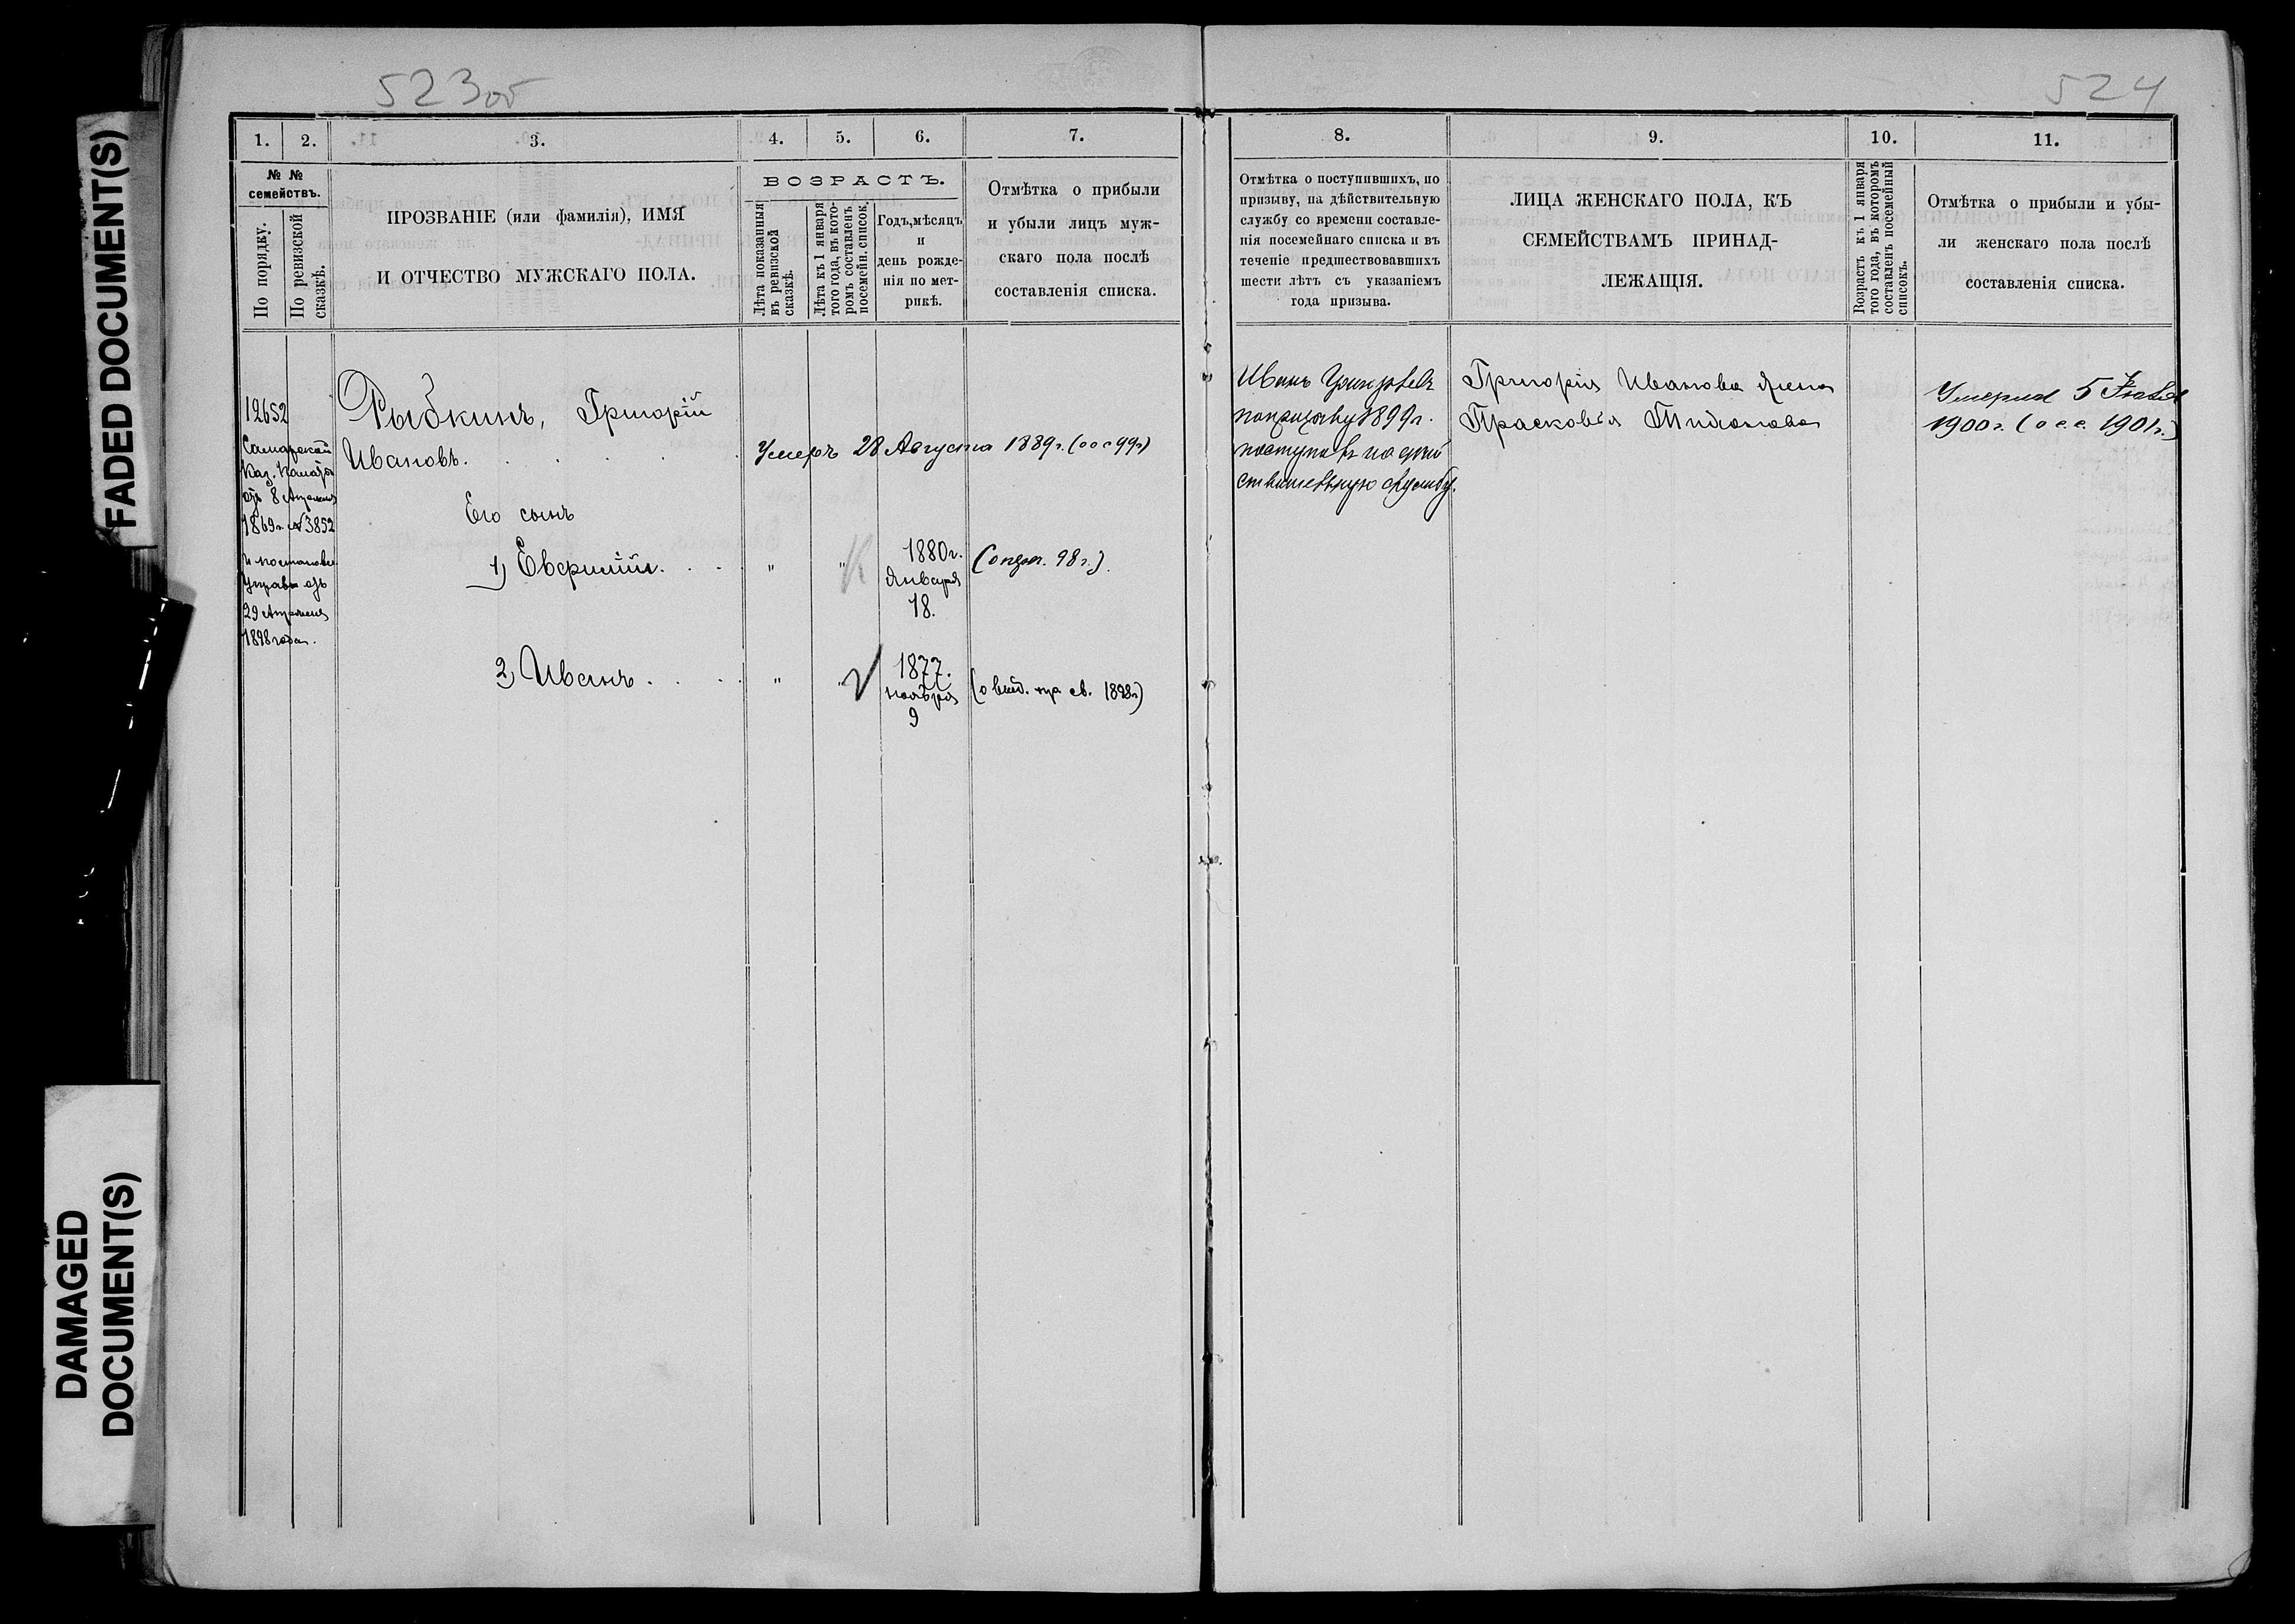 FADED DOCUMENT(S)
DAMAGED
DOCUMENT(S)
523об
1.
2.
3.
4.
5.
6.
7.
№ №
семействъ.
По порядку.
По ревизской
сказкѣ.
ПРОЗВАНІЕ (или фамилія), ИМЯ
И ОТЧЕСТВО МУЖСКАГО ПОЛА.
ВОЗРАСТЪ.
Лѣта показанныя
въ ревизской
сказкѣ.
Лѣта къ 1 января
того года, въ кото-
ромъ составленъ
посемейн. список.
Годъ, мѣсяцъ
и
день рожде-
нія по мет-
рикѣ.
Отмѣтка о прибыли
и убыли лицъ муж-
скаго пола послѣ
составленія списка.
12652
Самарской
Каз. Палаты
отъ 8 Апрѣля
1869г. №3852
и постановл.
Управы отъ
29 Апрѣля
1898 года.
Рыбкинъ, Григорій
Ивановъ.
Умеръ 28 Августа 1889г. (осс 99г)
Его сынъ
1) Евфимій
" "
1880г.
Января
18.
98г.).
2) Иванъ
" "
1877.
ноября
9
св. 1898г)
524
8.
9.
10.
11.
Отмѣтка о поступившихъ, по
призыву, на дѣйствительную
службу со времени составле-
нія посемейнаго списка и въ
теченіе предшествовавшихъ
шести лѣтъ съ указаніемъ
года призыва.
ЛИЦА ЖЕНСКАГО ПОЛА, КЪ
СЕМЕЙСТВАМЪ ПРИНАД-
ЛЕЖАЩІЯ.
Возрастъ къ 1 января
того года, въ которомъ
составленъ посемейный
списокъ.
Отмѣтка о прибыли и убы-
ли женскаго пола послѣ
составленія списка.
Иванъ Григорьевъ
по призыву 1899г.
поступилъ на дѣй
ствительную службу.
Григорія Иванова жена
Прасковья
Умерла 5
1900г. (осс. 1901г.)